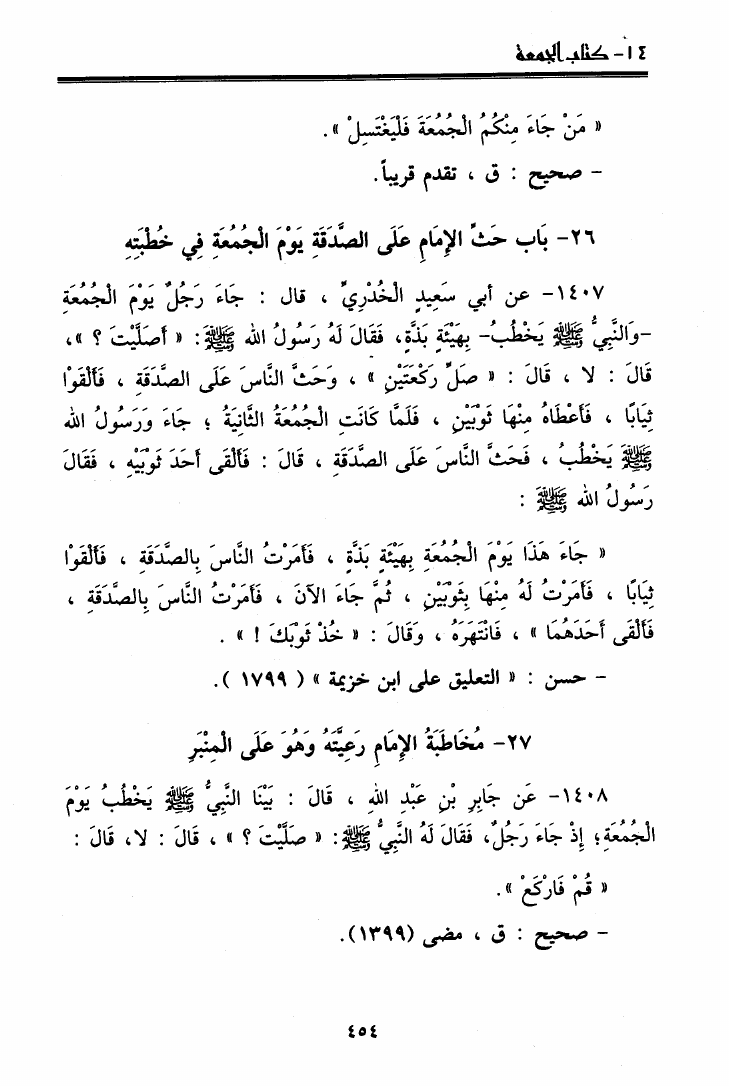 ١٤- كتاب الجمعة
« مَنْ جَاءَ مِنْكُمُ الْجُمُعَةَ فَلْيَغْتَسِلْ ».
- صحيح : ق ، تقدم قريباً.
٢٦- بَاب حَثِّ الإِمَامِ عَلَى الصَّدَقَةِ يَوْمَ الْجُمُعَةِ فِي خُطْبَتِهِ
١٤٠٧- عن أبي سَعِيدٍ الْخُدْرِيِّ ، قال : جَاءَ رَجُلٌ يَوْمَ الْجُمُعَةِ
-وَالنَّبِيُّ ﷺ يَخْطُبُ- بِهَيْئَةٍ بَذَّةٍ، فَقَالَ لَهُ رَسُولُ الله ﷺ: « أَصَلَّيْتَ ؟ »،
قَالَ : لا ، قَالَ : « صَلِّ رَكْعَتَيْنِ » ، وَحَثَّ النَّاسَ عَلَى الصَّدَقَةِ ، فَأَلْقَوْا
ثِيَابًا ، فَأَعْطَاهُ مِنْهَا ثَوْبَيْنِ ، فَلَمَّا كَانَتِ الْجُمُعَةُ الثَّانِيَةُ ؛ جَاءَ وَرَسُولُ الله
ﷺ يَخْطُبُ ، فَحَثَّ النَّاسَ عَلَى الصَّدَقَةِ ، قَالَ : فَأَلْقَى أَحَدَ ثَوْبَيْهِ ، فَقَالَ
رَسُولُ الله ﷺ :
« جَاءَ هَذَا يَوْمَ الْجُمُعَةِ بِهَيْئَةٍ بَذَّةٍ ، فَأَمَرْتُ النَّاسَ بِالصَّدَقَةِ ، فَأَلْقَوْا
ثِيَابًا ، فَأَمَرْتُ لَهُ مِنْهَا بِثَوْبَيْنِ ، ثُمَّ جَاءَ الآنَ ، فَأَمَرْتُ النَّاسَ بِالصَّدَقَةِ ،
فَأَلْقَى أَحَدَهُمَا » ، فَانْتَهَرَهُ ، وَقَالَ : « خُذْ ثَوْبَكَ ! » .
- حسن : « التعليق على ابن خزيمة » ( ١٧٩٩ ).
٢٧- مُخَاطَبَةُ الإِمَامِ رَعِيَّتَهُ وَهُوَ عَلَى الْمِنْبَرِ
١٤٠٨- عَن جَابِرِ بْنِ عَبْدِ اللهِ ، قَالَ : بَيْنَا النَّبِيُّ ﷺ يَخْطُبُ يَوْمَ
الْجُمُعَةِ؛ إِذْ جَاءَ رَجُلٌ، فَقَالَ لَهُ النَّبِيُّ ﷺ: « صَلَّيْتَ ؟ » ، قَالَ : لا، قَالَ :
« قُمْ فَارْكَعْ ».
- صحيح : ق ، مضى (١٣٩٩).
٤٥٤